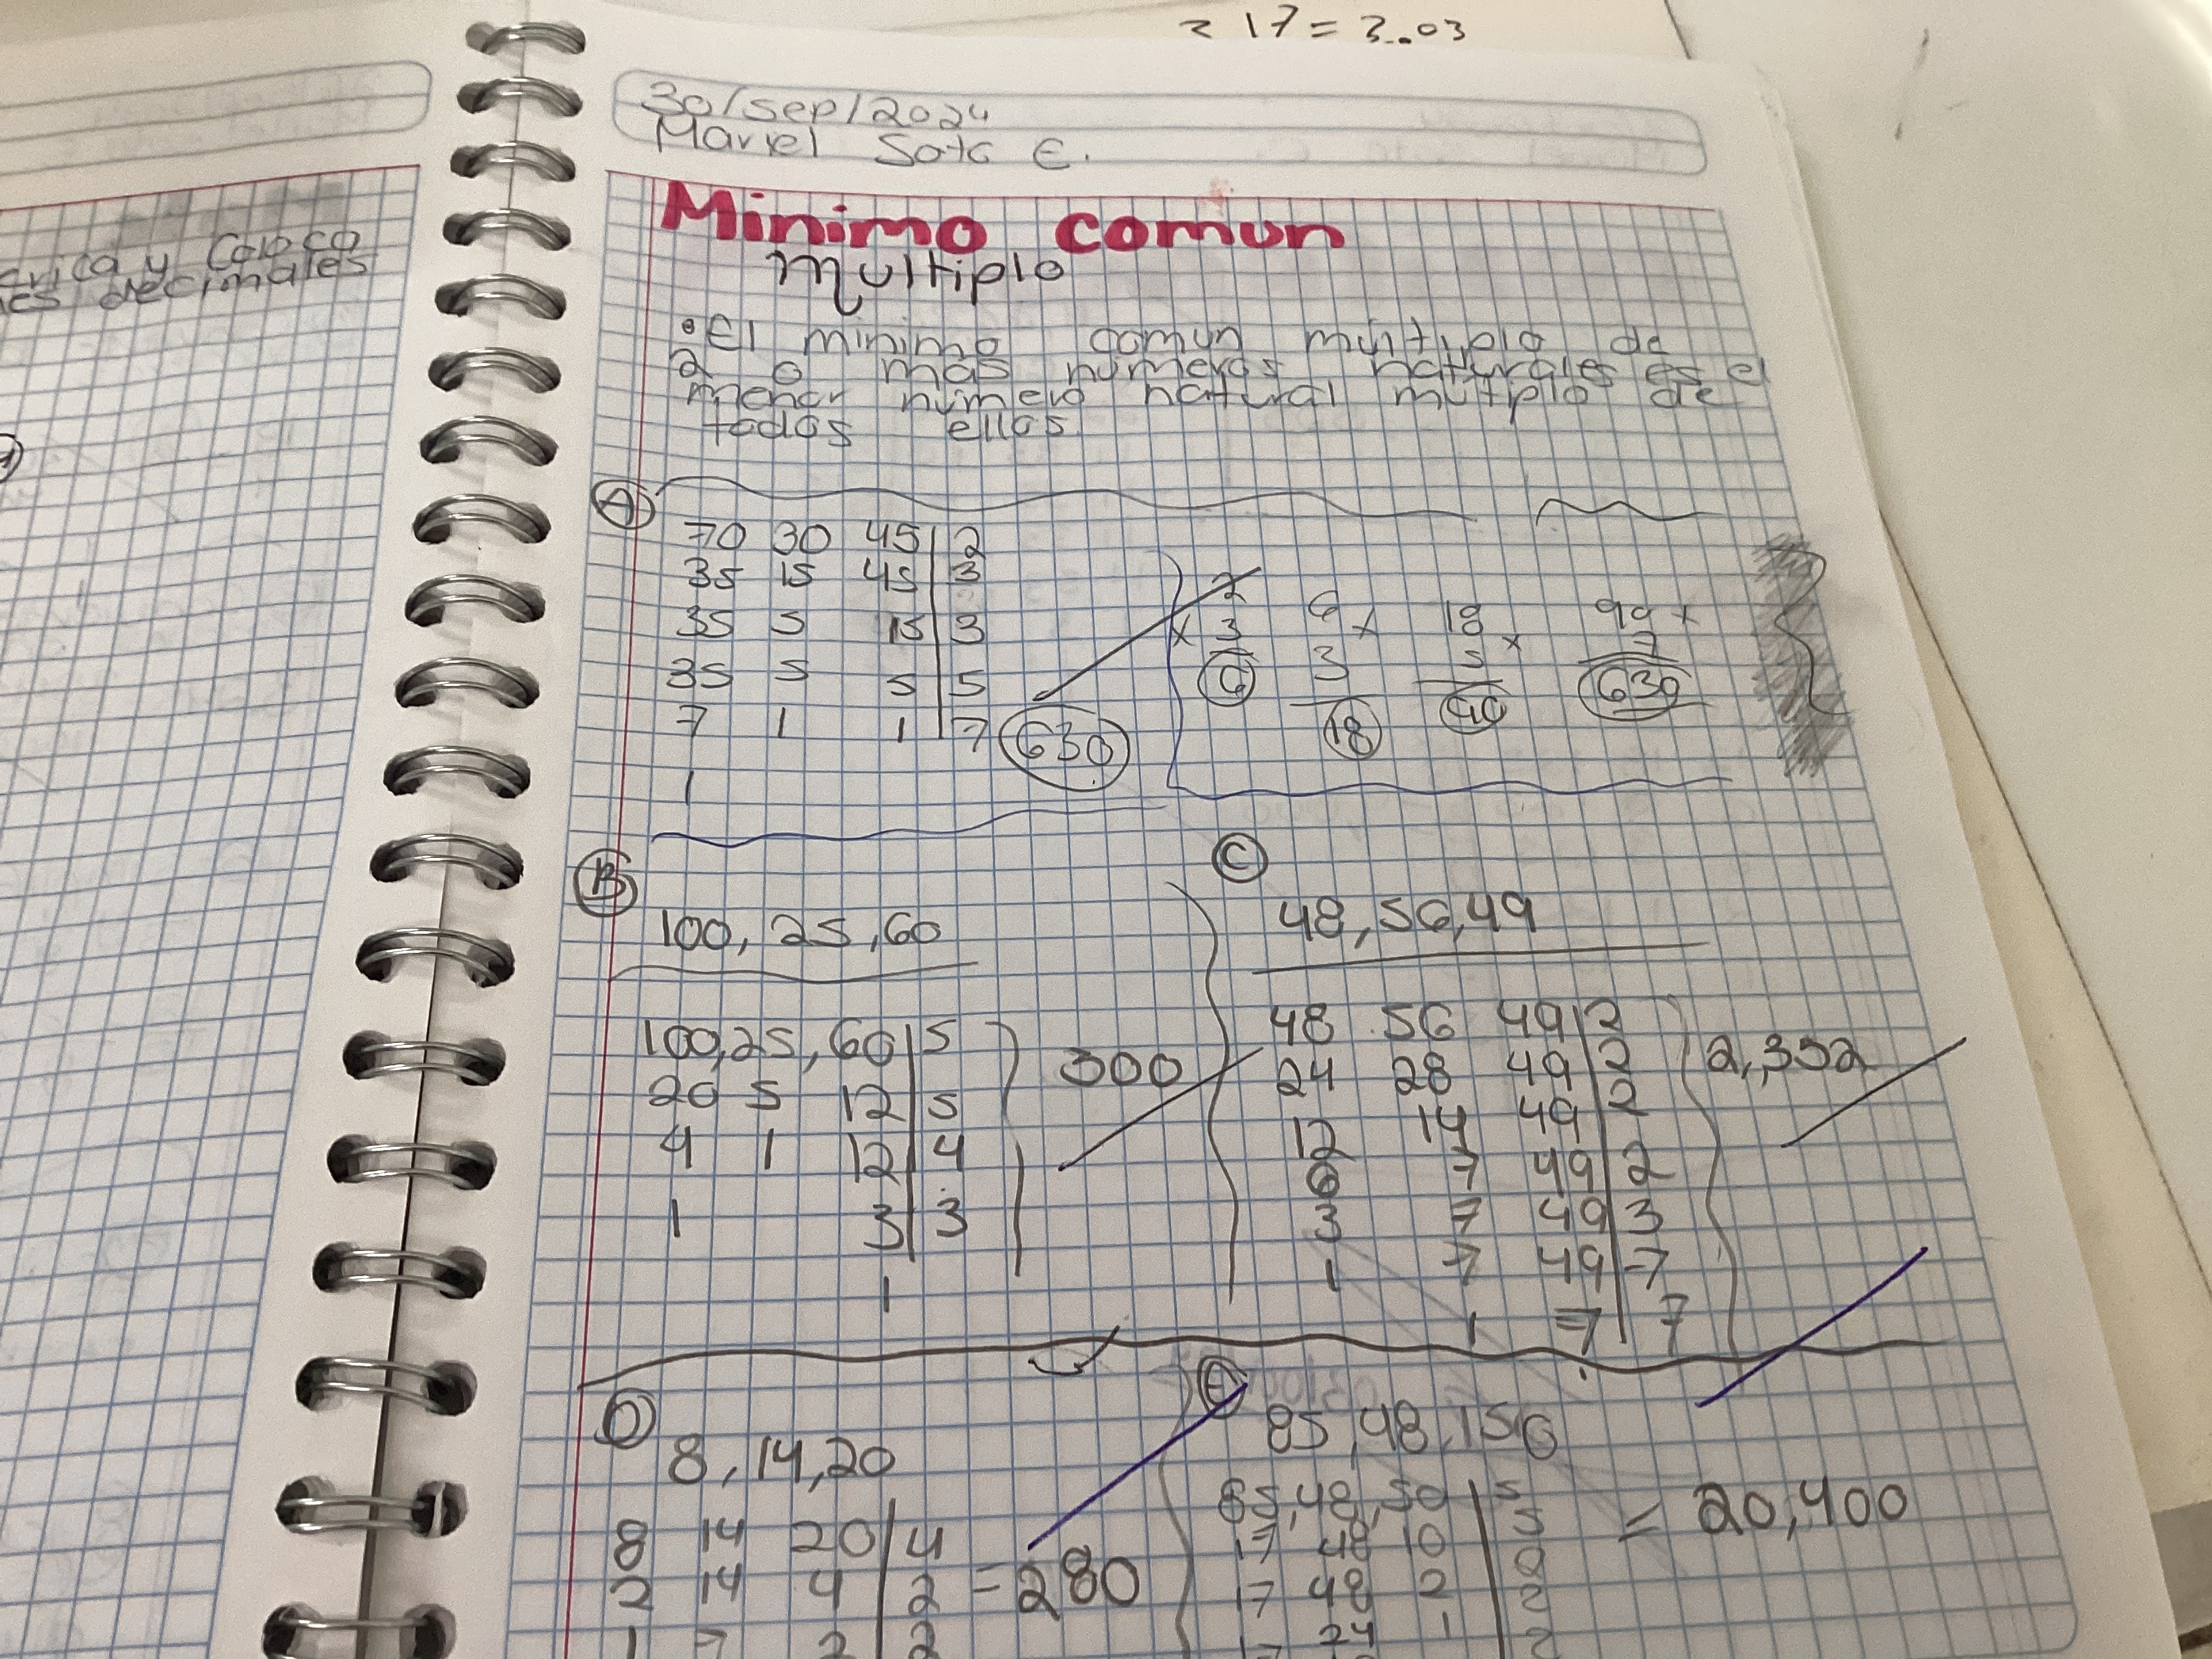 17 = 3.03
30/sep/2024
Mariel Soto E.
erica y Coloco
nes decimales
Minimo comun
multiplo
• El minimo comun multiplo de
2 o mas numeros naturales es el
menor numero natural mutiplo de
todos ellos
A
70 30 45 | 2
35 15 45 | 3
35 5 15 | 3
35 5 5 | 5
7 1 1 | 7
1
630
2 x 3
6
6 x 3
18
18 x 5
90
90 x 7
630
B
100, 25, 60
100, 25, 60 | 5
20 5 12 | 5
4 1 12 | 4
1 3 | 3
1
300
C
48, 56, 49
48 56 49 | 2
24 28 49 | 2
12 14 49 | 2
6 7 49 | 2
3 7 49 | 3
1 7 49 | 7
1 7 | 7
2,352
D
8, 14, 20
8 14 20 | 4
2 14 4 | 2
1 7 2 | 2
= 280
E
85, 48, 150
85, 48, 50 | 5
17 48 10 | 5
17 48 2 | 2
24 1 | 2
= 20,400